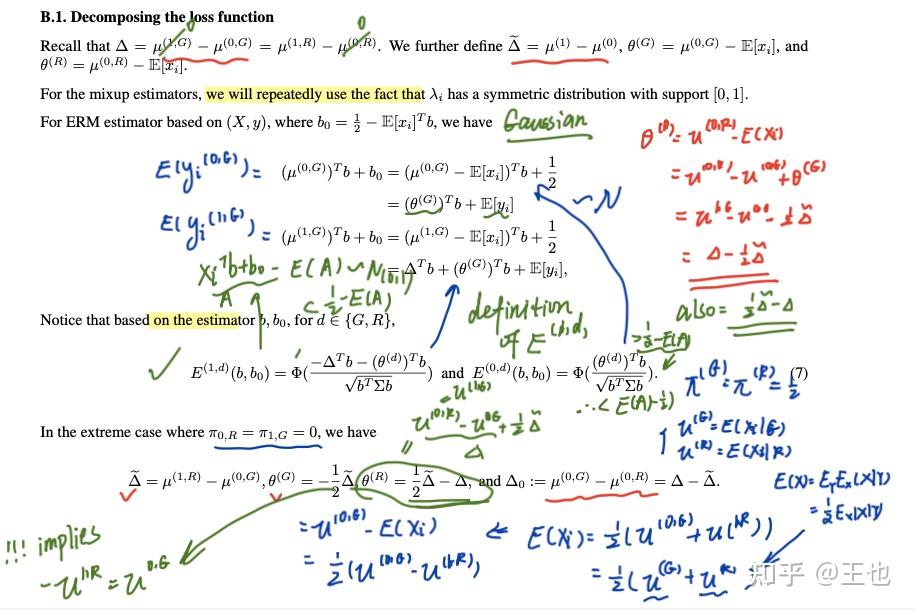 B.1. Decomposing the loss function
Recall that Δ = μ^(1,G) − μ^(0,G) = μ^(1,R) − μ^(0,R). We further define Δ̃ = μ^(1) − μ^(0), θ^(G) = μ^(0,G) − 𝔼[x_i], and
θ^(R) = μ^(0,R) − 𝔼[x_i].
For the mixup estimators, we will repeatedly use the fact that λ_i has a symmetric distribution with support [0, 1].
For ERM estimator based on (X, y), where b_0 = 1/2 − 𝔼[x_i]^T b, we have Gaussian
θ^(R) = u^(0,R) − E(Xi)
E(y_i^(0,G)) = (μ^(0,G))^T b + b_0 = (μ^(0,G) − 𝔼[x_i])^T b + 1/2
= u^(0,R) − u^(0,G) + θ^(G)
= (θ^(G))^T b + 𝔼[y_i] ~N
E(y_i^(1,G)) = (μ^(1,G))^T b + b_0 = (μ^(1,G) − 𝔼[x_i])^T b + 1/2
= Δ − 1/2 Δ̃
= Δ^T b + (θ^(G))^T b + 𝔼[y_i],
Xi^T b + b_0 − E(A) ~ N(0,1)
A < 1/2 − E(A)
definition
of E^(1,d)
also = 1/2 Δ̃ − Δ
Notice that based on the estimator b, b_0, for d ∈ {G, R},
> 1/2 − E(A)
E^(1,d)(b, b_0) = Φ((−Δ^T b − (θ^(d))^T b)/√(b^T Σb)) and E^(0,d)(b, b_0) = Φ((θ^(d))^T b/√(b^T Σb)). (7)
∴ < E(A) − 1/2
π^(G) = π^(R) = 1/2
u^(G) = E(Xi|G)
u^(R) = E(Xi|R)
u^(0,R) − u^(0,G) + 1/2 Δ̃
Δ
In the extreme case where π_0,R = π_1,G = 0, we have
Δ̃ = μ^(1,R) − μ^(0,G), θ^(G) = −1/2 Δ̃, θ^(R) = 1/2 Δ̃ − Δ, and Δ_0 := μ^(0,G) − μ^(0,R) = Δ − Δ̃.
E(X) = E_Y E_X(X|Y)
= 1/2 E_X(X|Y)
!!! implies
−u^1R = u^0,G
= u^(0,G) − E(Xi)
= 1/2 (u^(0,G) − u^(1,R))
⇐ E(Xi) = 1/2 (u^(0,G) + u^(1,R))
= 1/2 (u^(G) + u^(R))
知乎 @王也